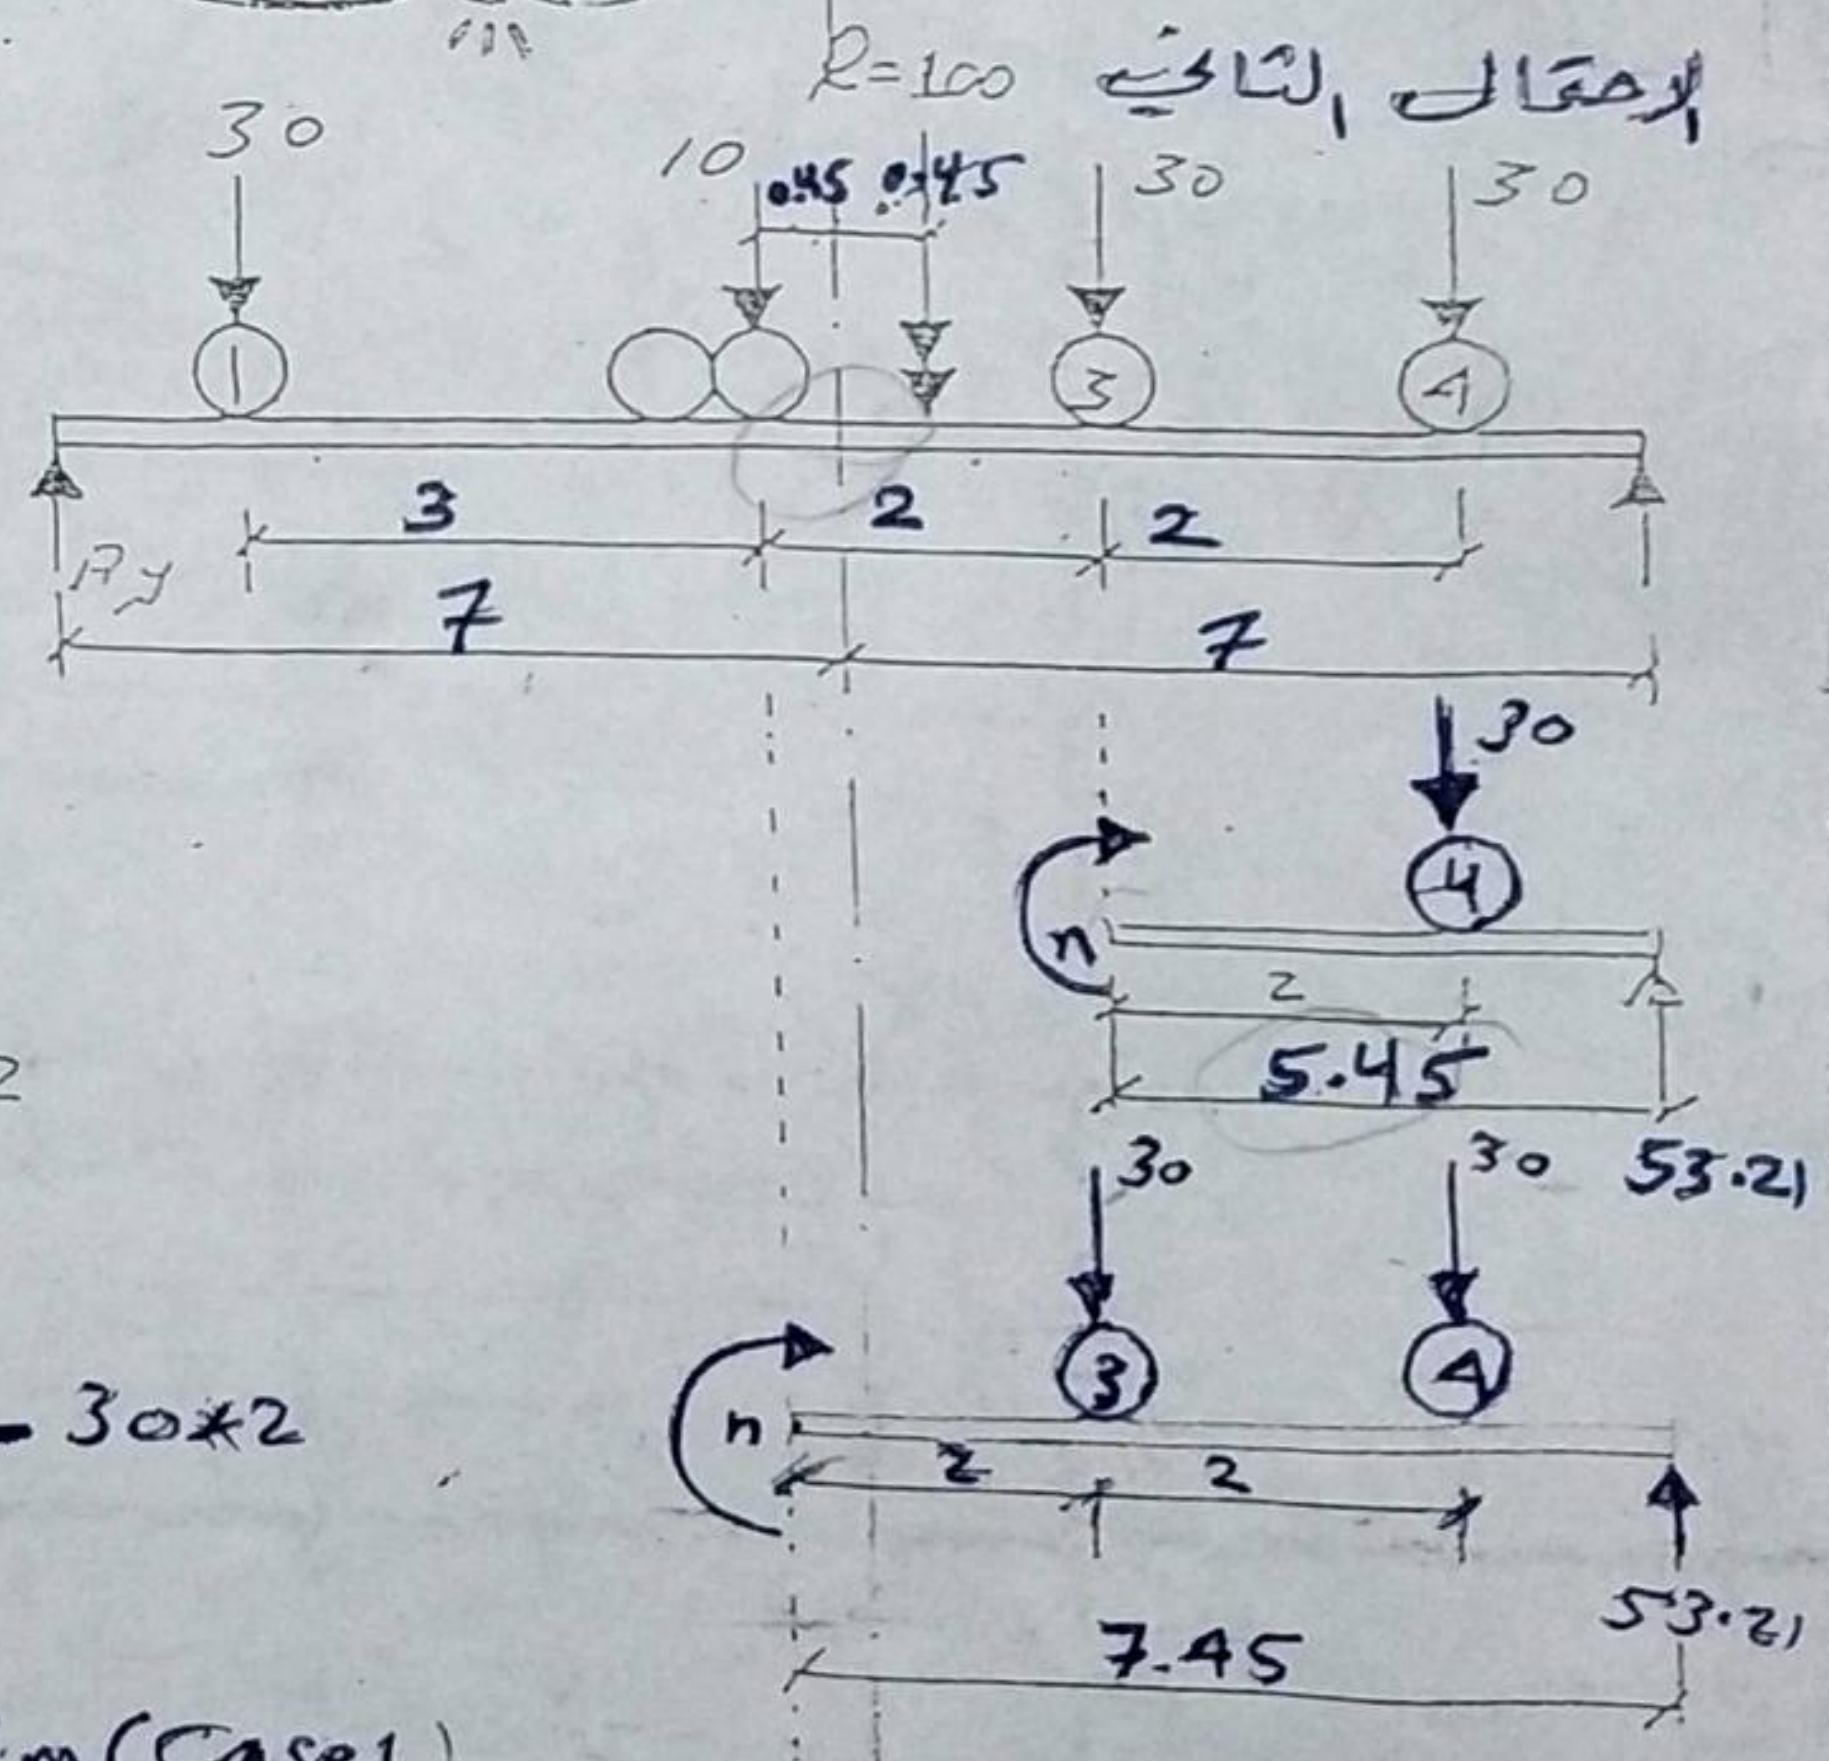 R=100 الاحتمال الثاني
30
10 0.45 0.45 30 30
1 3 4
3 2 2
Ay
7 7
30
4
n
2
2
5.45
30 30 53.21
3 4
- 30*2
n
2 2
53.21
7.45
(Case1)